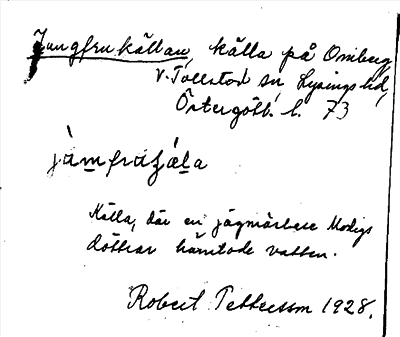 Jungfrukällan, källa på Omberg,
V. Tollstad sn, Lysings hd,
Östergötl. l. 73
jàmfrutjǽla
Källa, där en jägmästare Modigs
döttrar hämtade vatten.
Robert Pettersson 1928.